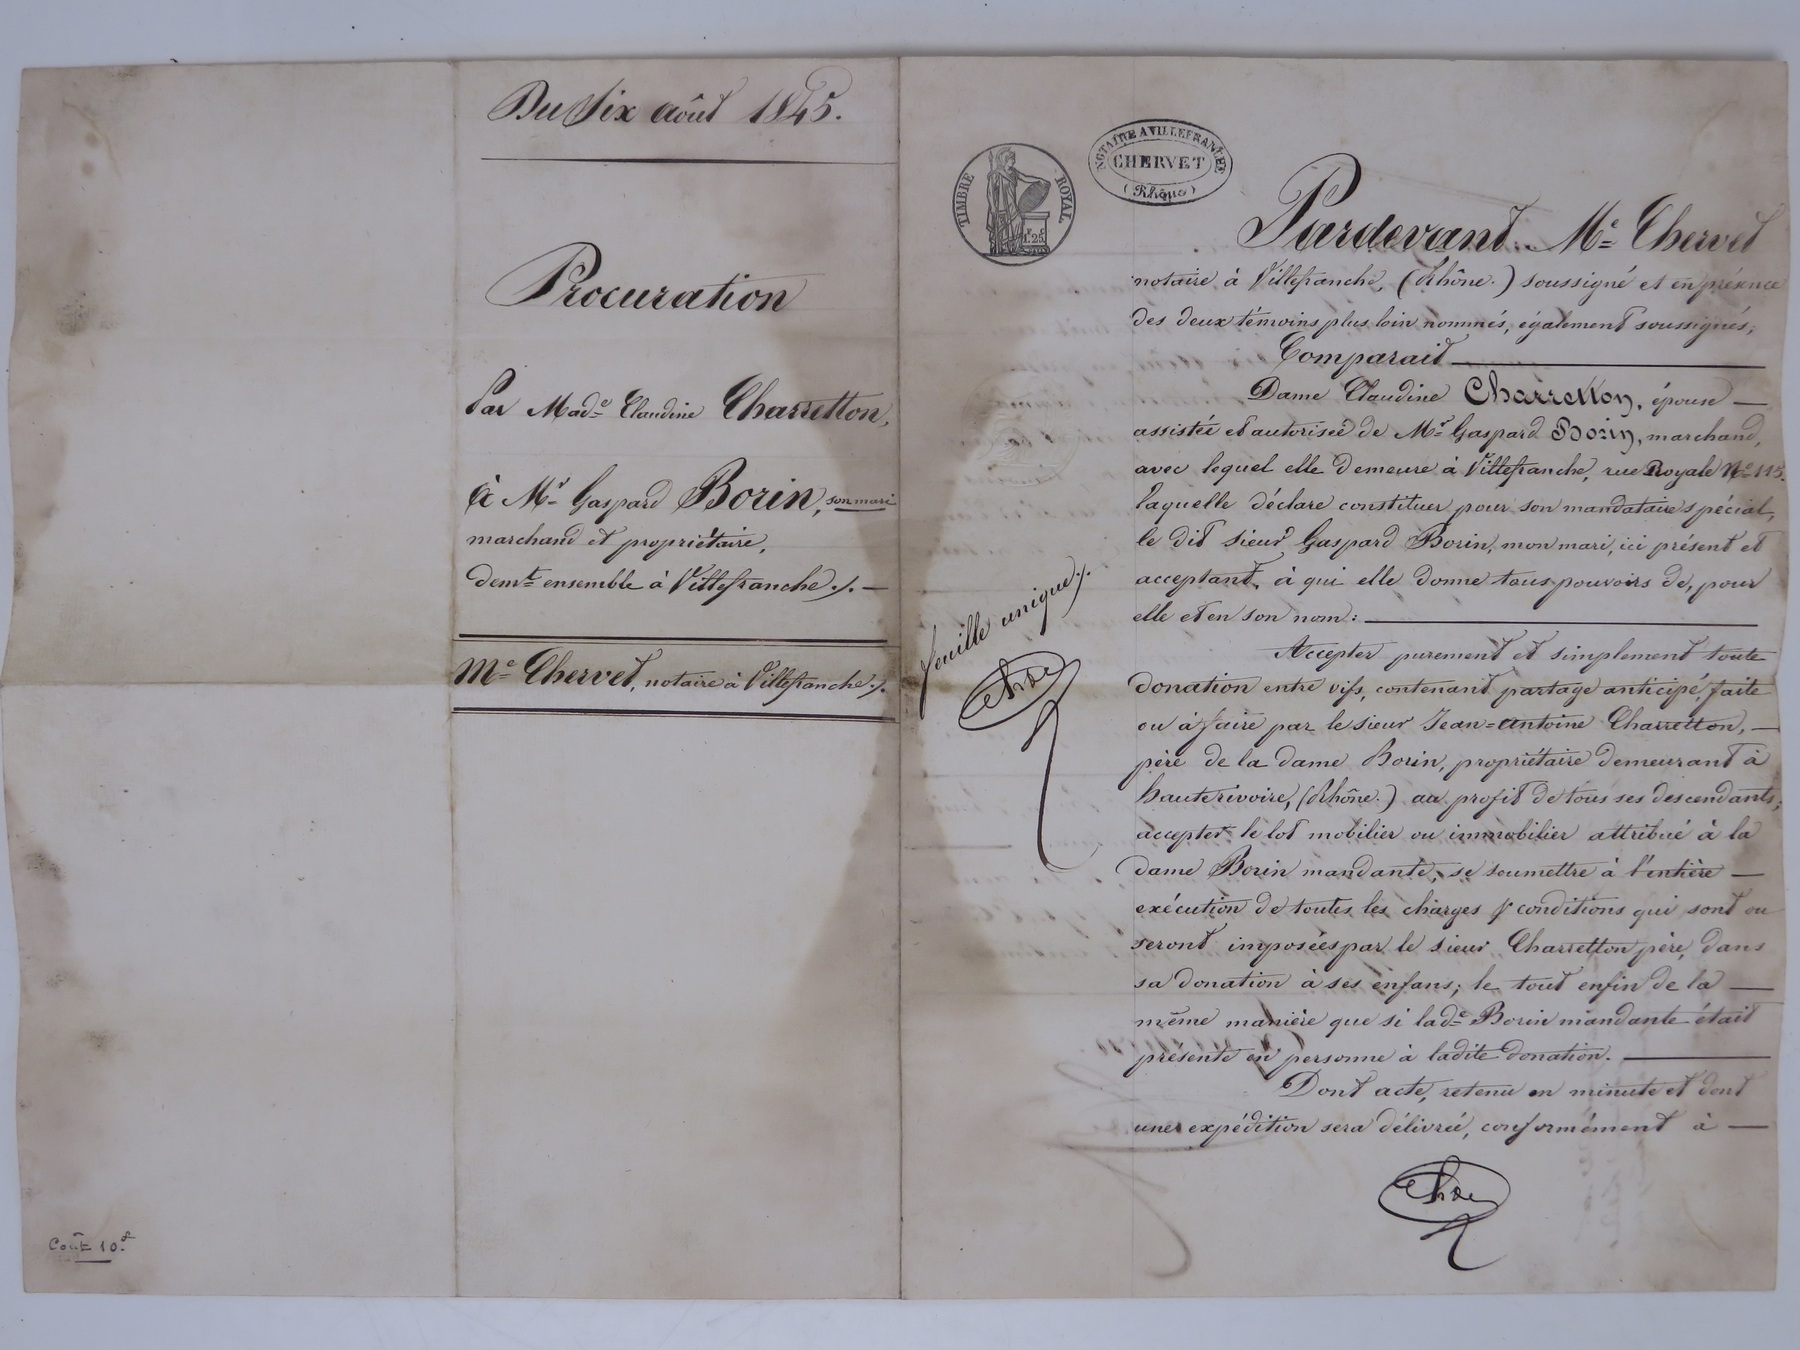 Du Six août 1845.
Procuration
Par Made Claudine Charretton,
à Mr Gaspard Borin, son mari
marchand et propriétaire,
demt ensemble à Villefranche ./. —
Me Chervet, notaire à Villefranche ./.
Coût 10f
TIMBRE ROYAL
1f.25c
NOTAIRE A VILLEFRANCHE
CHERVET
(Rhône)
feuille unique ./.
Pardevant Me Chervet
notaire à Villefranche, (Rhône.) soussigné et en présence
des deux témoins plus loin nommés, également soussignés,
Comparait
Dame Claudine Charretton, épouse —
assistée et autorisée de Mr Gaspard Borin, marchand,
avec lequel elle demeure à Villefranche, rue Royale No 115.
laquelle déclare constituer pour son mandataire spécial,
le dit sieur Gaspard Borin, mon mari, ici présent et
acceptant, à qui elle donne tous pouvoirs de, pour
elle et en son nom:
Accepter purement et simplement toute
donation entre vifs, contenant partage anticipé, faite
ou à faire par le sieur Jean=antoine Charretton, —
père de la dame Borin, propriétaire demeurant à
hauterivoire, (Rhône.) au profit de tous ses descendants;
accepter le lot mobilier ou immobilier attribué à la
dame Borin mandante, se soumettre à l'entière —
exécution de toutes les charges & conditions qui sont ou
seront imposées par le sieur Charretton père, dans
sa donation à ses enfans; le tout enfin de la —
même manière que si lade Borin mandante était
présente en personne à ladite donation.
Dont acte, retenu en minute et dont
une expédition sera délivrée, conformément à —